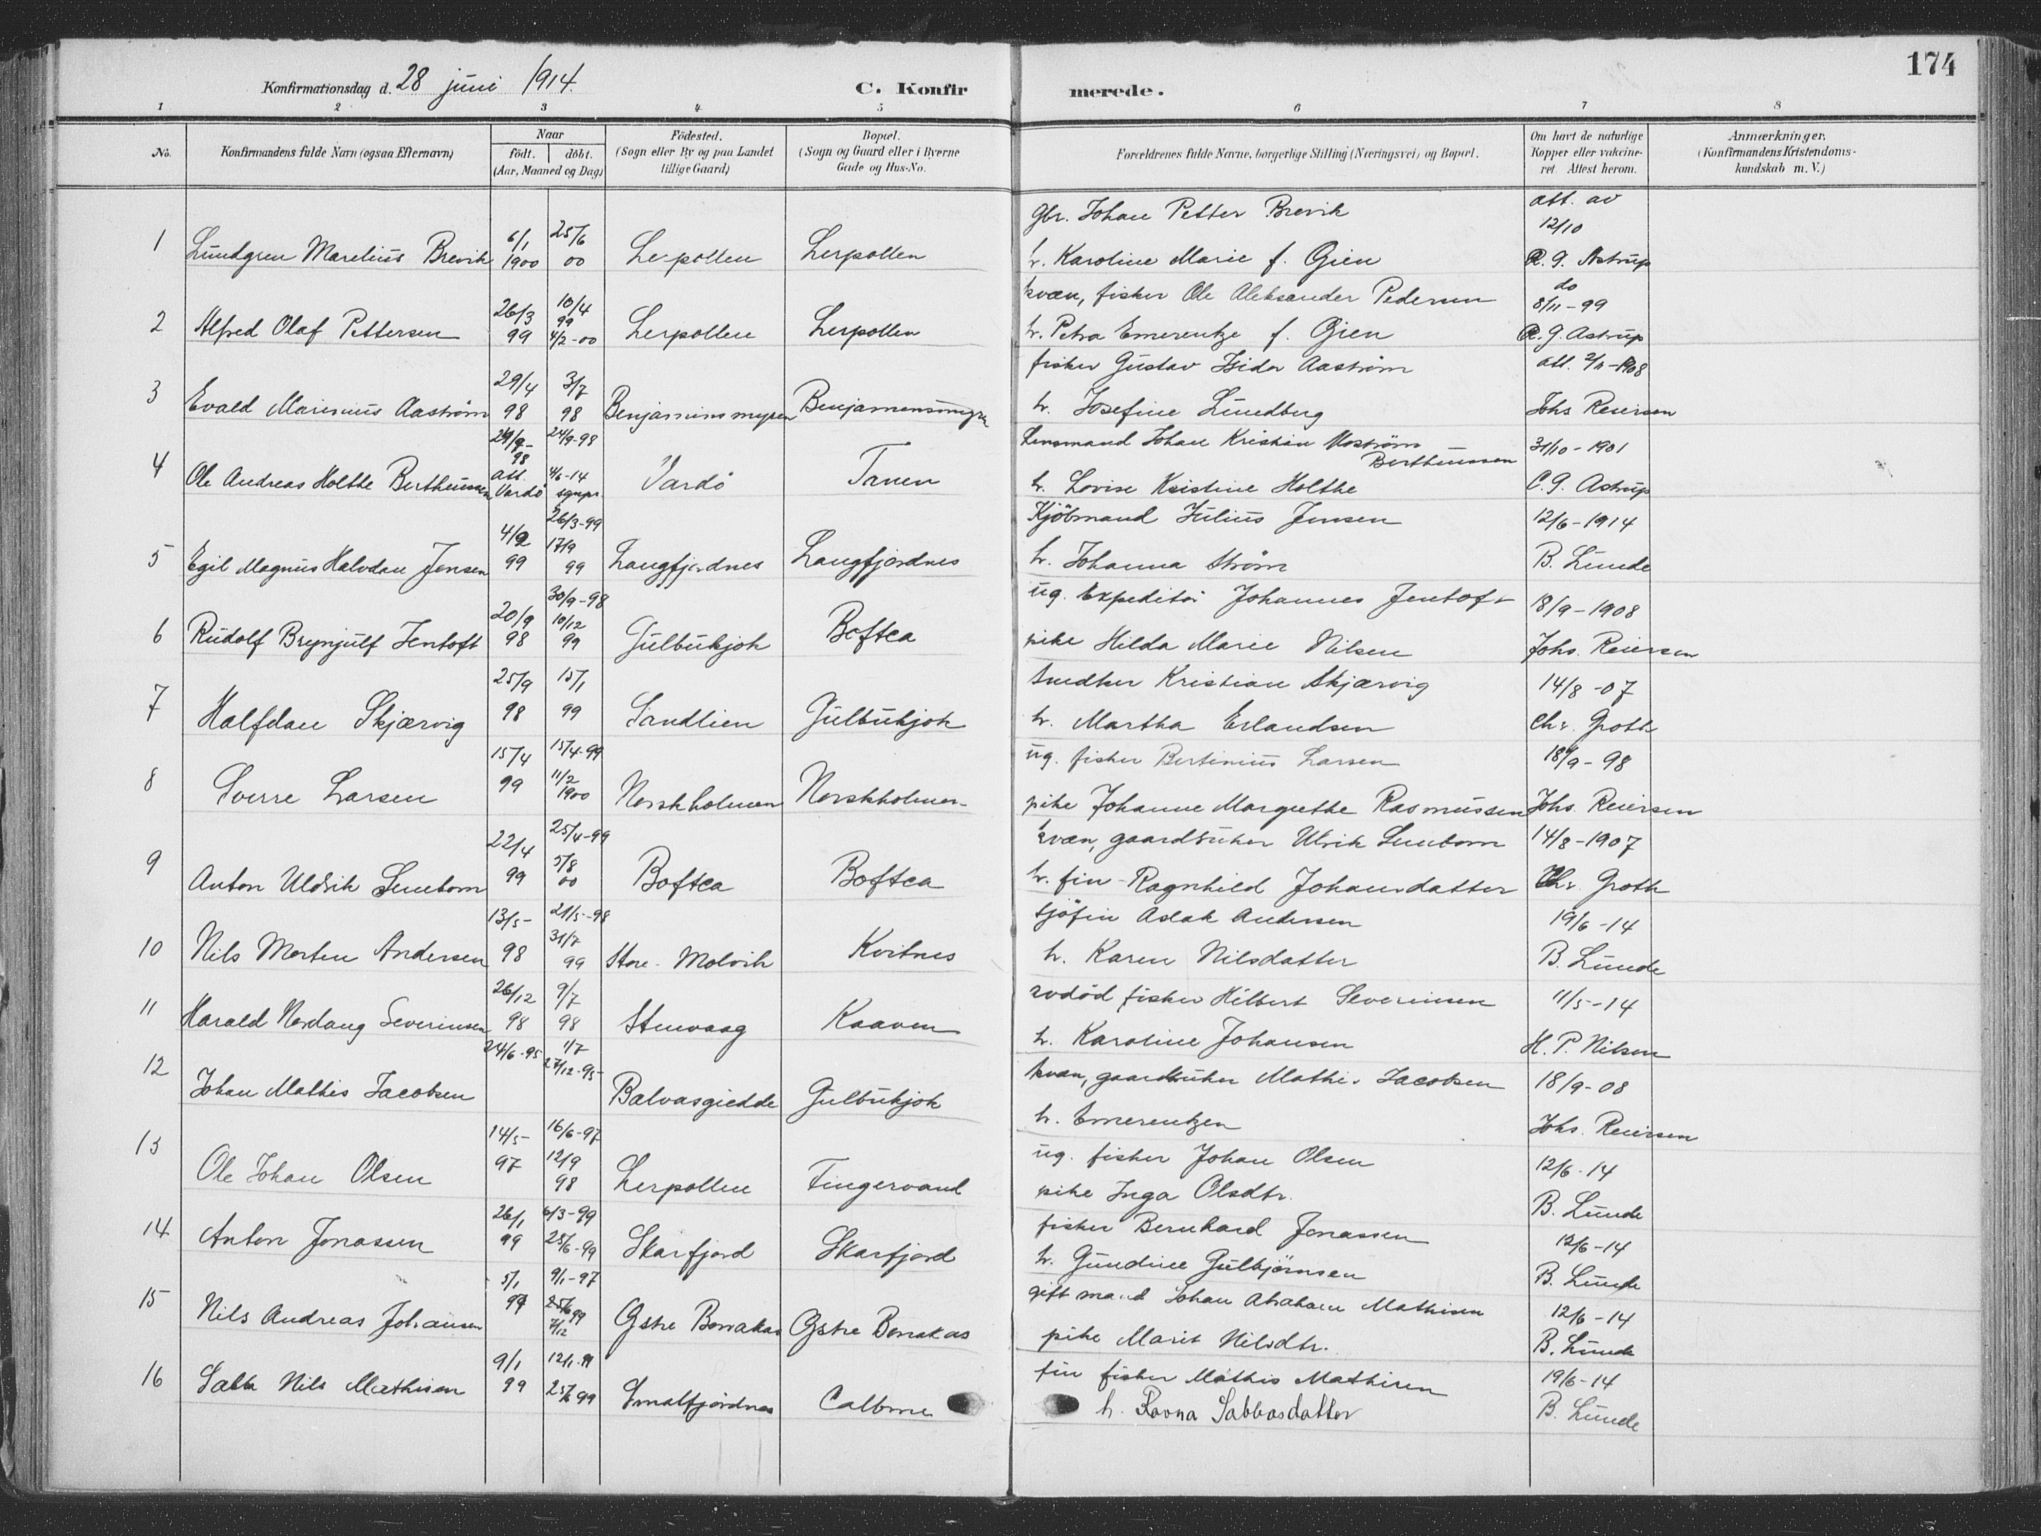 174
Konfirmationsdag d. 28 juni 1914.
C. Konfirmerede.
1 2 3 4 5 6 7 8
No.
Konfirmandens fulde Navn (ogsaa Efternavn)
Naar
födt. döbt.
(Aar, Maaned og Dag)
Födested.
(Sogn eller By og paa Landet
tillige Gaard)
Bopæl.
(Sogn og Gaard eller i Byerne
Gade og Hus-No.
Forældrenes fulde Navne, borgerlige Stilling (Næringsvei) og Bopæl.
Om havt de naturlige
Kopper eller vakcine-
ret Attest herom.
Anmærkninger.
(Konfirmandens Kristendoms-
kundskab m. V.)
gbr. Johan Petter Brevik att. av
12/10
1 Lundgren Marelius Brevik 6/1 1900 25/6 00 Lerpollen Lerpollen
h. Karoline Marie f. Gien C. G. Astrup
kvæn, fisker Ole Aleksander Pedersen do 8/11-99
2 Alfred Olaf Pettersen 26/3 99 10/4 99 4/2-00 Lerpollen Lerpollen
h. Petra Emerentze f. Gien C. G. Astrup
fisker Gustav Isidor Aastrøm att. 2/11-1908
3 Evald Marinius Aastrøm 29/4 98 3/7 98 Benjaminsmyren Benjamensmyren
h. Josefine Lundberg Johs Reiersen
Lensmand Johan Kristian Mostrøm Bertheussen 31/10-1901
4 Ole Andreas Holthe Bertheussen 98 att. Vardø 24/9-98 4/6-14 sgnpr. Vardö Tanen
h. Lovise Kristine Holthe C. G. Astrup
Kjöbmand Julius Jensen 12/6-1914
5 Egil Magnus Halvdan Jensen 4/2 99 26/3-99 17/9 99 Langfjordnes Langfjordnes
h. Johanna Strøm B. Lunde
ug. Expeditör Johannes Jentoft 18/9-1908
6 Rudolf Brynjulf Jentoft 20/9 98 30/9-98 10/12 99 Gulbukjok Boftca
pike Hilda Marie Nilsen Johs. Reiersen
Snedker Kristian Skjærvig 14/8-07
7 Halfdan Skjærvig 25/9 98 15/1 99 Sandlien Gulbukjok
h. Martha Erlandsen Chr. Groth
ug. fisker Bertinius Larsen 18/9-98
8 Sverre Larsen 15/4 99 15/4-99 11/2 1900 Norskholmen Norskholmen
pike Johanne Margrethe Rasmussen Johs. Reiersen
kvæn, gaardbruker Ulrik Simborn 14/8-1907
9 Anton Uldrik Simborn 22/4 99 25/4-99 5/8 00 Boftca Boftca
h. fin Ragnhild Johansdatter Chr Groth
sjöfin Aslak Andersen 19/6-14
10 Nils Morten Andersen 13/5- 98 21/5-98 31/7 99 Store-Molvik Kvitnes
h. Karen Nilsdatter B. Lunde
avdöd fisker Hilbert Severinsen 11/5-14
11 Harald Nordang Severinsen 26/12 98 9/7 98 Stenvaag Kaaven
h. Karoline Johansen H. P. Nilsen
kvæn, gaardbruker Mathis Jacobsen 18/9-08
12 Johan Mathis Jacobsen 24/6-95 1/7 27/12-95 Balvasgiedde Gulbukjok
h. Emerentzen Johs. Reiersen
ug. fisker Johan Olsen 12/6-14
13 Ole Johan Olsen 14/5- 97 16/6-97 12/9 98 Lerpollen Fingervand
pike Inga Olsdtr. B. Lunde
fisker Bernhard Jonassen 12/6-14
14 Anton Jonassen 26/1 99 6/3-99 25/6-99 Skarfjord Skarfjord
h. Gundine Gulbjörnsen B. Lunde
gift mand Johan Abraham Mathisen 12/6-14
15 Nils Andreas Johansen 5/1 9/1-97 25/6 99 7/12 Östre Borrakas Östre Borrakas
pike Marit Nilsdtr. B. Lunde
fin fisker Mathis Mathisen 19/6-14
16 Sabba Nils Mathisen 9/1 99 12/1-99 25/6 99 Smalfjordnes Calbme
h. Ravna Sabbasdatter B. Lunde